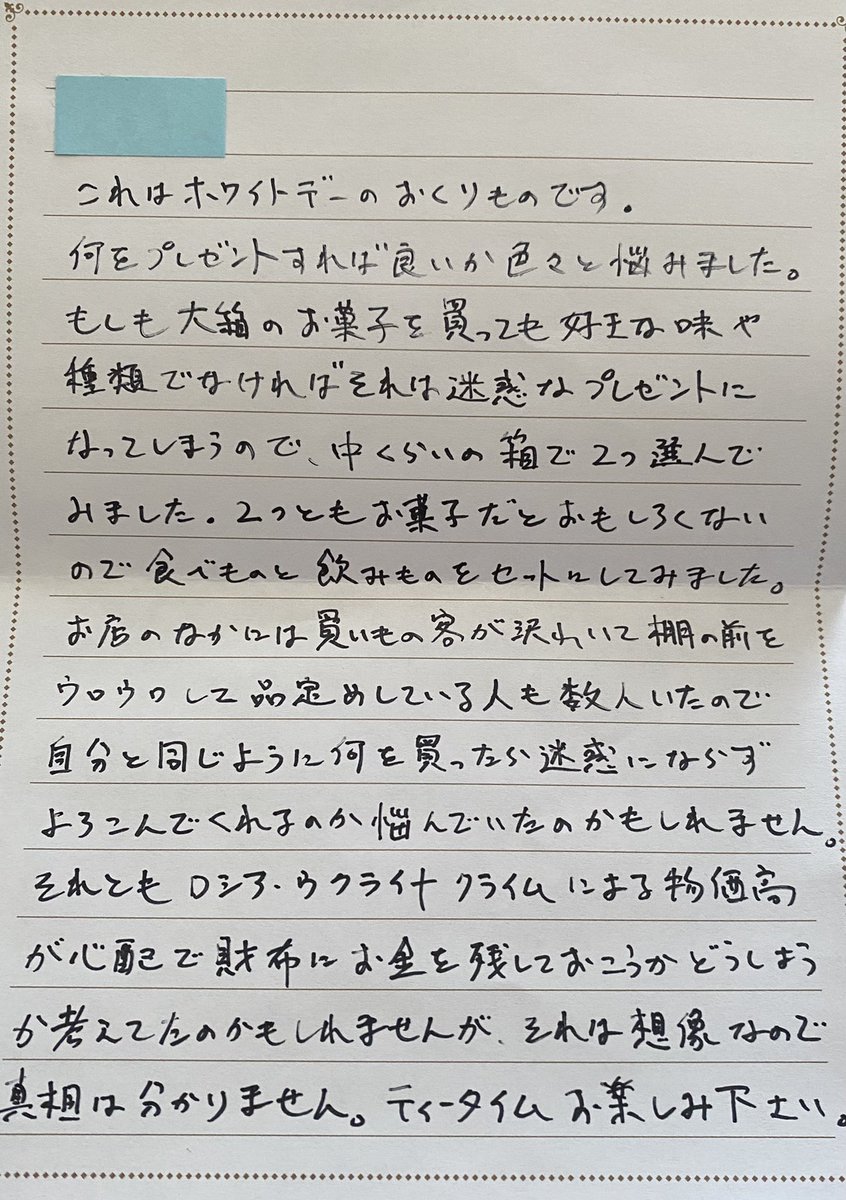 これはホワイトデーのおくりものです。
何をプレゼントすれば良いか色々と悩みました。
もしも大箱のお菓子を買っても好きな味や
種類でなければそれは迷惑なプレゼントに
なってしまうので、中くらいの箱で2つ選んで
みました。2つともお菓子だとおもしろくない
ので食べものと飲みものをセットにしてみました。
お店のなかには買いもの客が沢れいて棚の前を
ウロウロして品定めしている人も数人いたので
自分と同じように何を買ったら迷惑にならず
よろこんでくれるのか悩んでいたのかもしれません。
それともロシア・ウクライナクライムによる物価高
が心配で財布にお金を残しておこうかどうしよう
か考えてたのかもしれませんが、それは想像なので
真相は分かりません。ティータイムお楽しみ下さい。